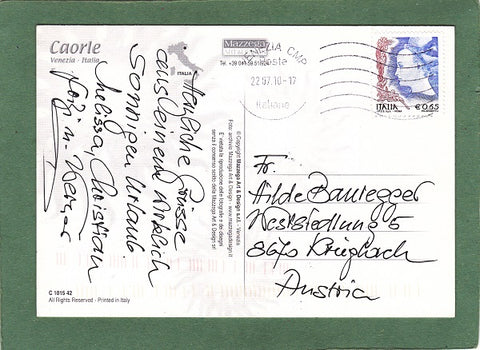 Caorle
Venezia - Italia
ITALIA
Mazzega
Tel. +39 041
VENEZIA CMP
Poste
22.07.10-17
Italiane
ITALIA € 0,65
Herzliche Grüsse
aus einem wirklich
sonnigen Urlaub
Melissa, Christian
© Copyright Mazzega Art & Design s.r.l. - Venezia
Foto: archivio Mazzega Art & Design - www.mazzegadesign.it
È vietata la riproduzione delle fotografie e dei disegni
senza il consenso scritto della Mazzega Art & Design srl
Fr.
Hilde Bauregger
Westsiedlung 5
8670 Krieglach
Austria
C 1015 42
All Rights Reserved - Printed in Italy